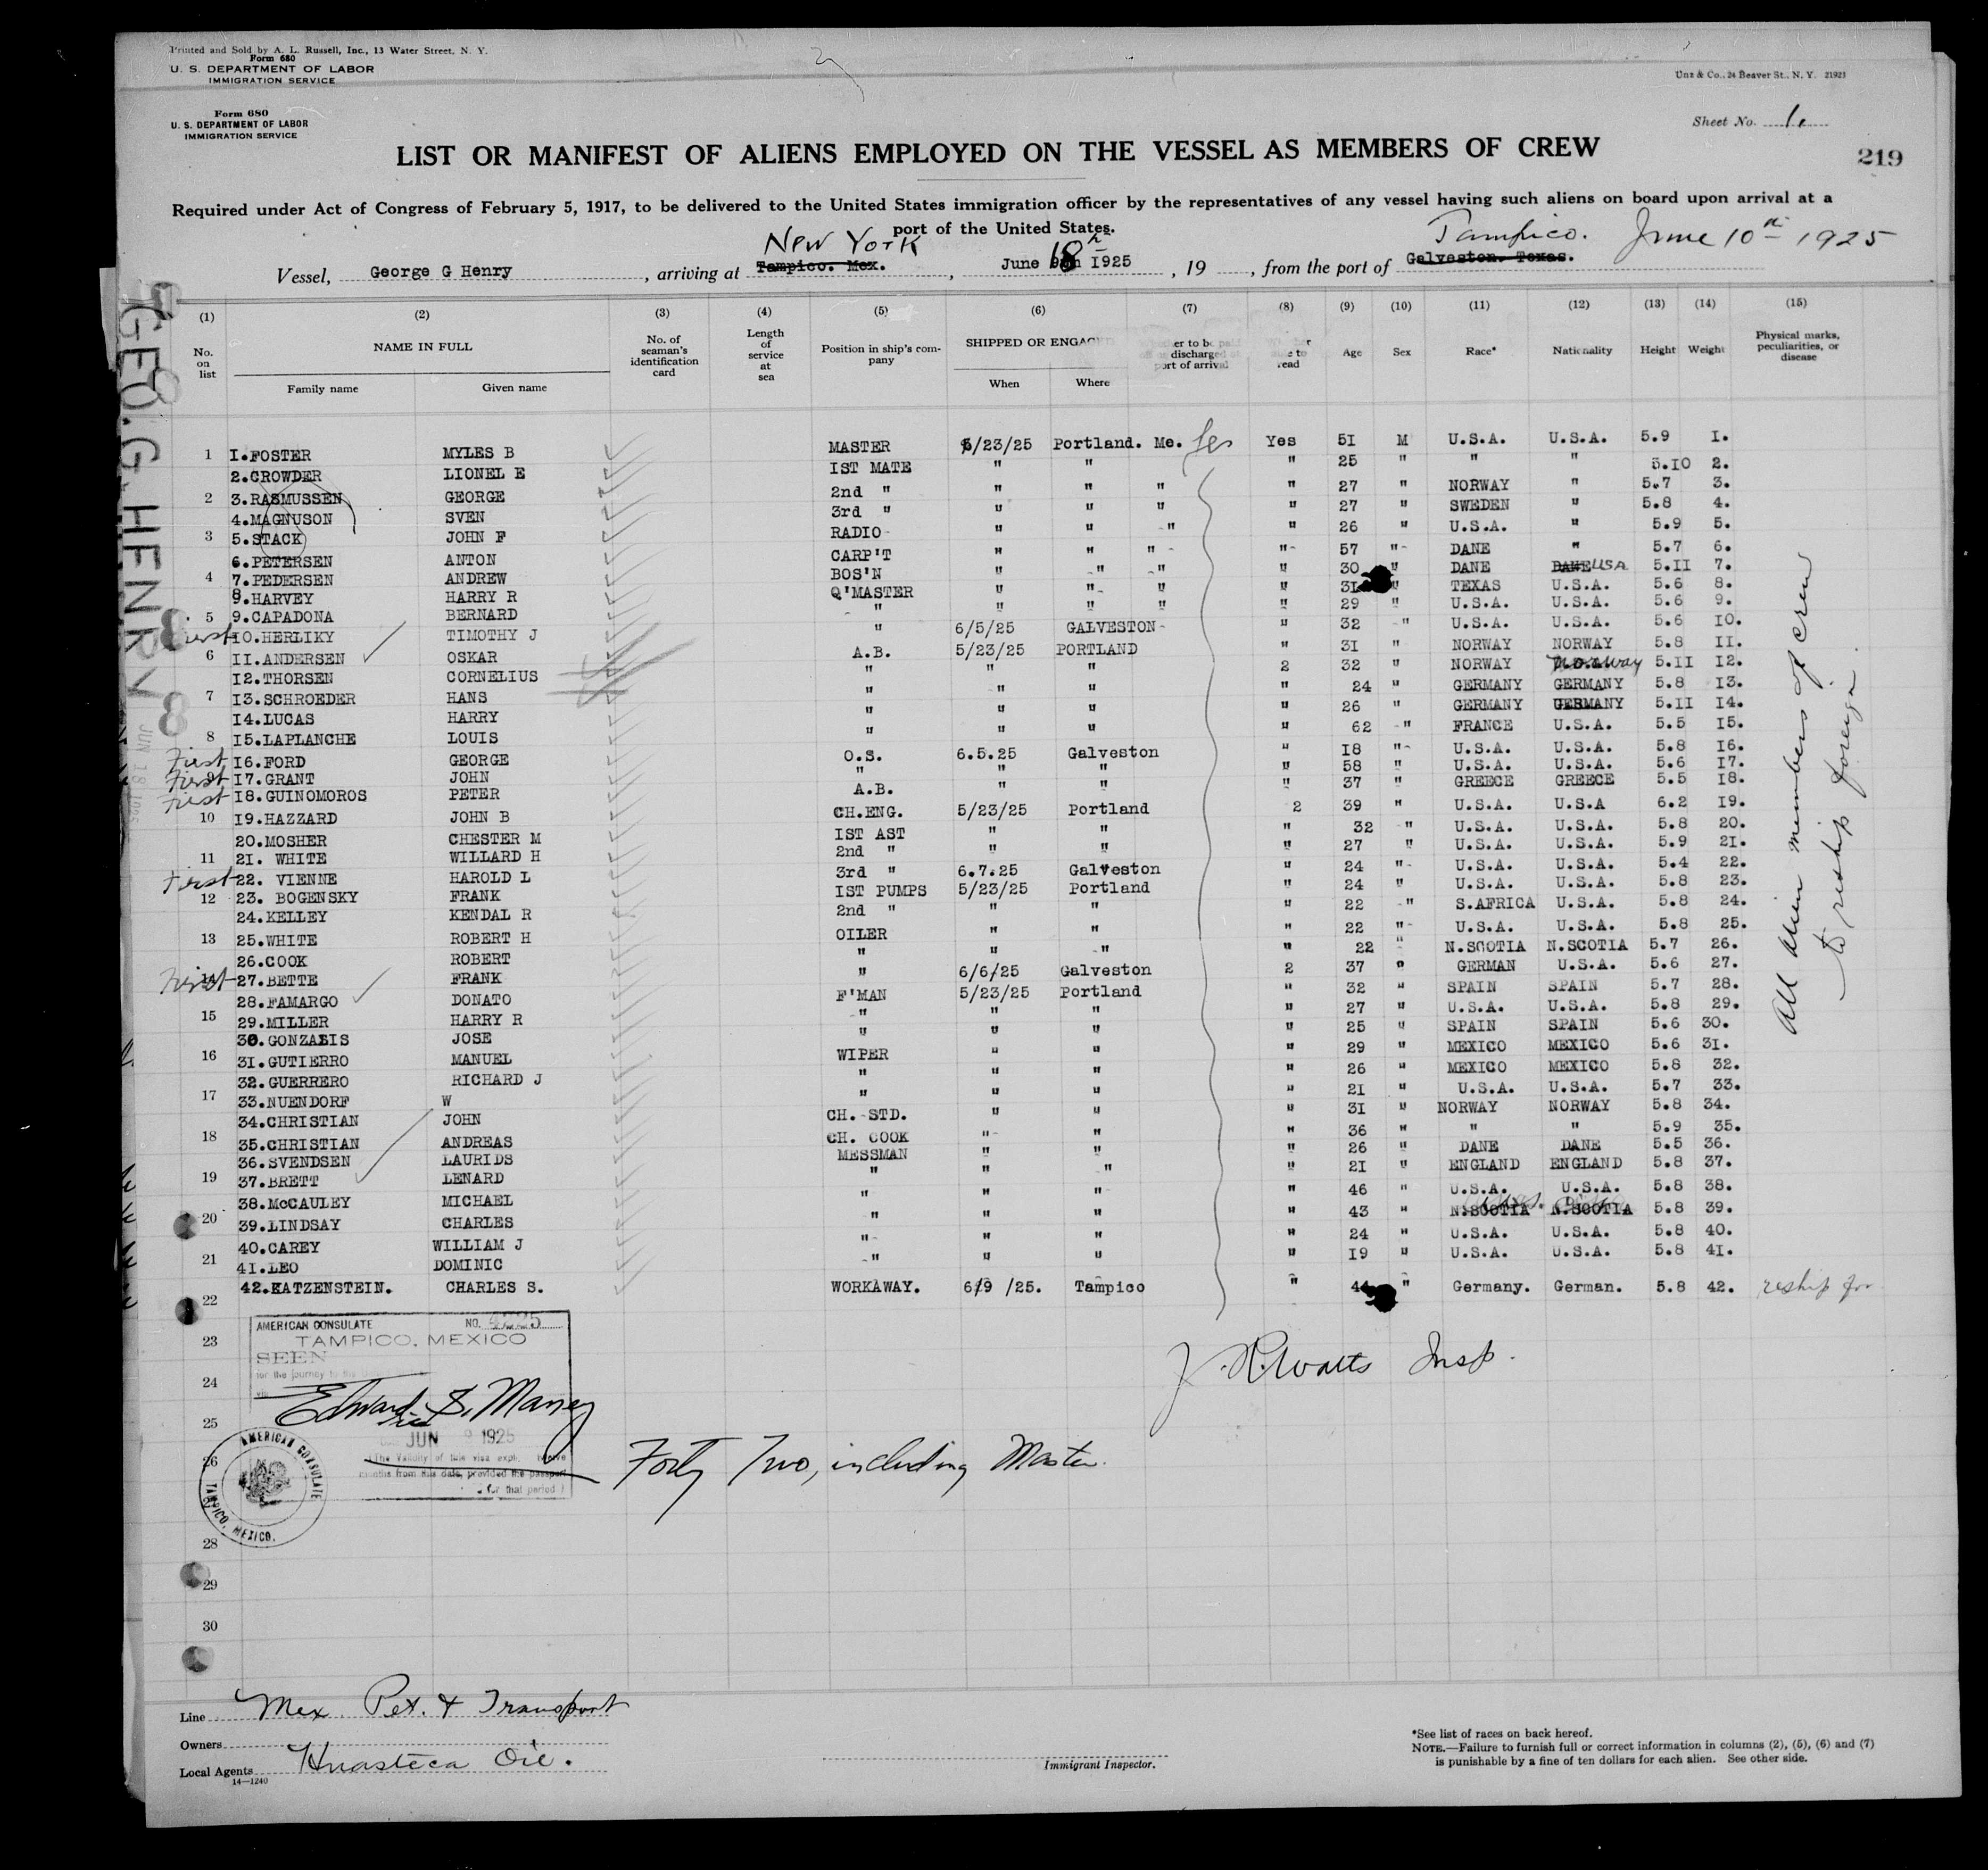 Printed and Sold by A. L. Russell, Inc., 13 Water Street, N. Y.
Form 680
U. S. DEPARTMENT OF LABOR
IMMIGRATION SERVICE
Unz & Co., 24 Beaver St., N. Y. 21921
Form 680
U. S. DEPARTMENT OF LABOR
IMMIGRATION SERVICE
Sheet No. 1.
LIST OR MANIFEST OF ALIENS EMPLOYED ON THE VESSEL AS MEMBERS OF CREW
219
Required under Act of Congress of February 5, 1917, to be delivered to the United States immigration officer by the representatives of any vessel having such aliens on board upon arrival at a
port of the United States.
New York Tampico. June 10th 1925
Vessel, George G Henry, arriving at Tampico. Mex., June 18 1925, 19, from the port of Galveston. Texas.
GEO. G. HENRY
JUN 18
(1) (2) (3) (4) (5) (6) (7) (8) (9) (10) (11) (12) (13) (14) (15)
No. on list NAME IN FULL No. of seaman's identification card Length of service at sea Position in ship's company SHIPPED OR ENGAG discharged port of arrival to read Age Sex Race* Nationality Height Weight Physical marks, peculiarities, or disease
Family name Given name When Where
1 1.FOSTER MYLES B MASTER 5/23/25 Portland. Me. Yes Yes 51 M U.S.A. U.S.A. 5.9 1.
2.CROWDER LIONEL E 1ST MATE " " " 25 " " " 5.10 2.
2 3.RASMUSSEN GEORGE 2nd " " " " " 27 " NORWAY " 5.7 3.
4.MAGNUSON SVEN 3rd " " " " " 27 " SWEDEN " 5.8 4.
3 5.STACK JOHN F RADIO " " " " 26 " U.S.A. " 5.9 5.
6.PETERSEN ANTON CARP'T " " " " 57 " DANE " 5.7 6.
4 7.PEDERSEN ANDREW BOS'N " " " " 30 " DANE DANE USA 5.11 7.
8.HARVEY HARRY R Q'MASTER " " " " 31 " TEXAS U.S.A. 5.6 8.
5 9.CAPADONA BERNARD " " " " " 29 " U.S.A. U.S.A. 5.6 9.
First 10.HERLIKY TIMOTHY J " 6/5/25 GALVESTON " 32 " U.S.A. U.S.A. 5.6 10.
6 11.ANDERSEN OSKAR A.B. 5/23/25 PORTLAND " 31 " NORWAY NORWAY 5.8 11.
12.THORSEN CORNELIUS " " " 2 32 " NORWAY Norway 5.11 12.
7 13.SCHROEDER HANS " " " " 24 " GERMANY GERMANY 5.8 13.
14.LUCAS HARRY " " " " 26 " GERMANY GERMANY 5.11 14.
8 15.LAPLANCHE LOUIS " " " " 62 " FRANCE U.S.A. 5.5 15.
First 16.FORD GEORGE O.S. 6.5.25 Galveston " 18 " U.S.A. U.S.A. 5.8 16.
First 17.GRANT JOHN " " " " 58 " U.S.A. U.S.A. 5.6 17.
First 18.GUINOMOROS PETER A.B. " " " 37 " GREECE GREECE 5.5 18.
10 19.HAZZARD JOHN B CH.ENG. 5/23/25 Portland 2 39 " U.S.A. U.S.A 6.2 19.
20.MOSHER CHESTER M 1ST AST " " " 32 " U.S.A. U.S.A. 5.8 20.
11 21. WHITE WILLARD H 2nd " " " " 27 " U.S.A. U.S.A. 5.9 21.
First 22. VIENNE HAROLD L 3rd " 6.7.25 Galveston " 24 " U.S.A. U.S.A. 5.4 22.
12 23. BOGENSKY FRANK 1ST PUMPS 5/23/25 Portland " 24 " U.S.A. U.S.A. 5.8 23.
24.KELLEY KENDAL R 2nd " " " " 22 " S.AFRICA U.S.A. 5.8 24.
13 25.WHITE ROBERT H OILER " " " 22 " U.S.A. U.S.A. 5.8 25.
26.COOK ROBERT " " " " 22 " N.SCOTIA N.SCOTIA 5.7 26.
First 27.BETTE FRANK " 6/6/25 Galveston 2 37 " GERMAN U.S.A. 5.6 27.
28.FAMARGO DONATO F'MAN 5/23/25 Portland " 32 " SPAIN SPAIN 5.7 28.
15 29.MILLER HARRY R " " " " 27 " U.S.A. U.S.A. 5.8 29.
30.GONZALIS JOSE " " " " 25 " SPAIN SPAIN 5.6 30.
16 31.GUTIERRO MANUEL WIPER " " " 29 " MEXICO MEXICO 5.6 31.
32.GUERRERO RICHARD J " " " " 26 " MEXICO MEXICO 5.8 32.
17 33.NUENDORF W " " " " 21 " U.S.A. U.S.A. 5.7 33.
34.CHRISTIAN JOHN CH. STD. " " " 31 " NORWAY NORWAY 5.8 34.
18 35.CHRISTIAN ANDREAS CH. COOK " " " 36 " " " 5.9 35.
36.SVENDSEN LAURIDS MESSMAN " " " 26 " DANE DANE 5.5 36.
19 37.BRETT LENARD " " " " 21 " ENGLAND ENGLAND 5.8 37.
38.McCAULEY MICHAEL " " " " 46 " U.S.A. U.S.A. 5.8 38.
20 39.LINDSAY CHARLES " " " " 43 " N.SCOTIA N.SCOTIA 5.8 39.
40.CAREY WILLIAM J " " " " 24 " U.S.A. U.S.A. 5.8 40.
21 41.LEO DOMINIC " " " " 19 " U.S.A. U.S.A. 5.8 41.
22 42.KATZENSTEIN. CHARLES S. WORKAWAY. 6/9 /25. Tampico " 44 " Germany. German. 5.8 42. reship for
All alien members of crew
to reship foreign.
AMERICAN CONSULATE NO. 4225
23 TAMPICO, MEXICO
SEEN
for the journey to the
24
Edward S. Maney
25
JUN 9 1925
J. R. Watts Insp.
26 (The Validity of this visa expires twelve
months from this date, provided the passport
for that period)
AMERICAN CONSULATE TAMPICO, MEXICO.
Forty Two, including Master.
28
29
30
Line Mex. Pet. & Transport
Owners
Local Agents Huasteca Oil.
14—1240
Immigrant Inspector.
*See list of races on back hereof.
NOTE.—Failure to furnish full or correct information in columns (2), (5), (6) and (7)
is punishable by a fine of ten dollars for each alien. See other side.